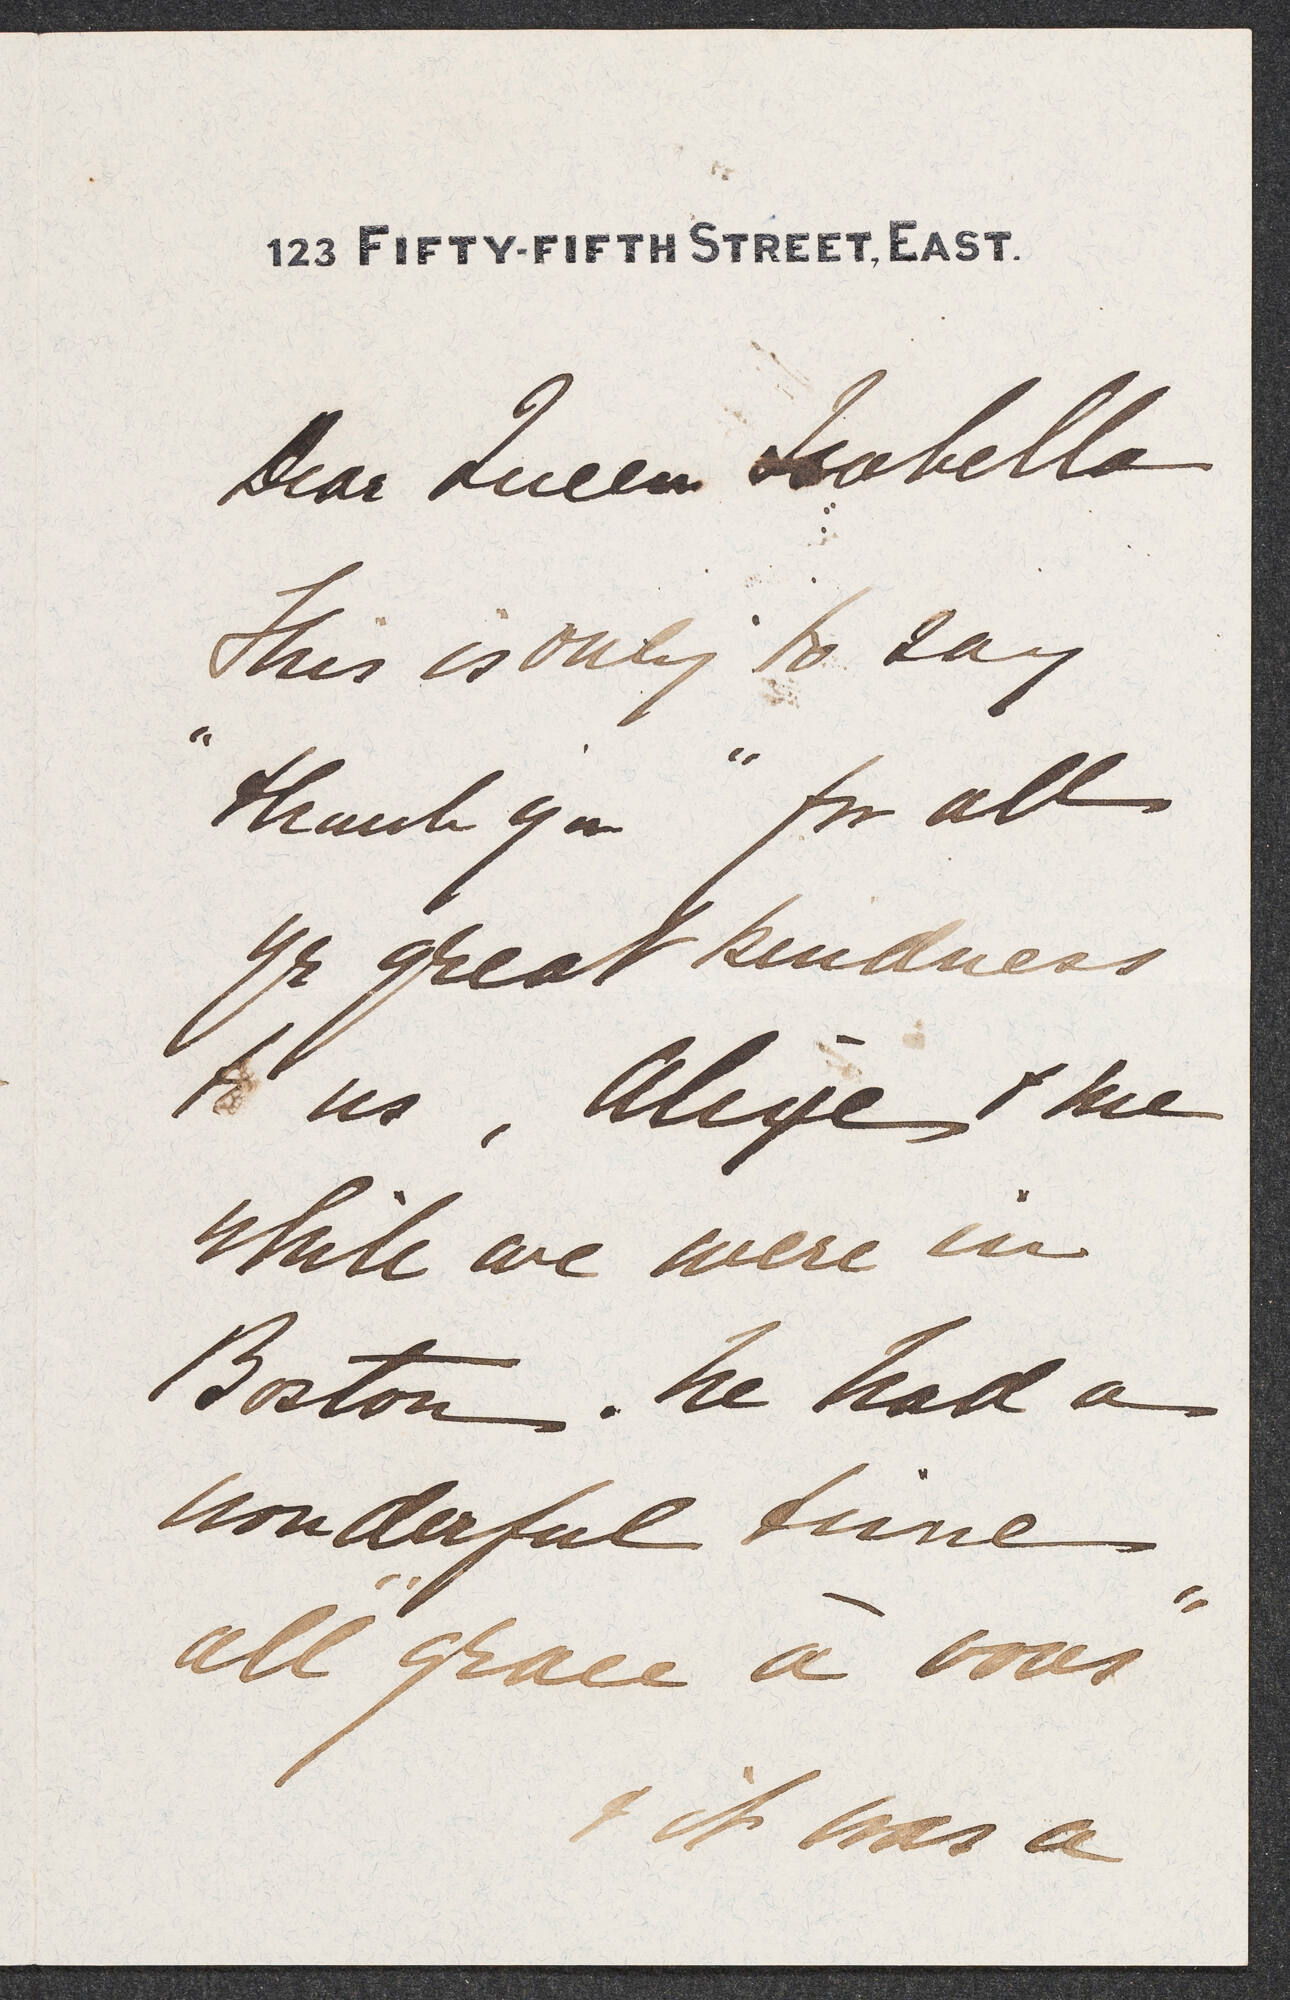 123 FIFTY-FIFTH STREET, EAST.
Dear Queen Isabella
This is only to say
"thank you" for all
yr great kindness
to us, Alixe & me
while we were in
Boston. he had a
wonderful time
all "grace à vous"
& it was a